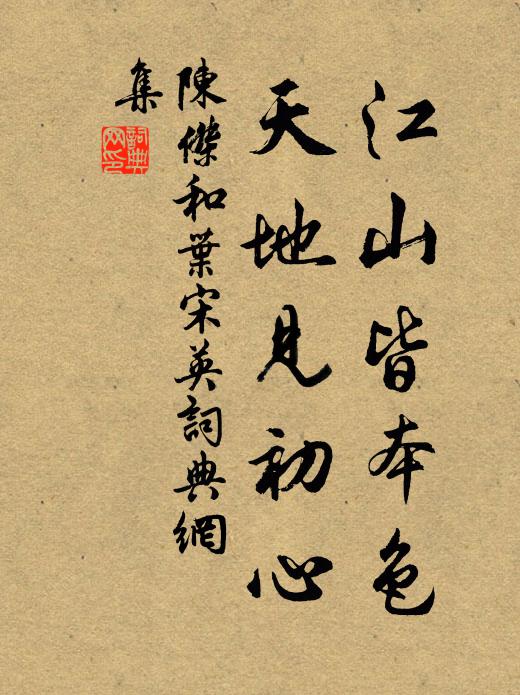 江山皆本色
天地見初心
陳傑和葉宋英詞典網
集
詞典网印